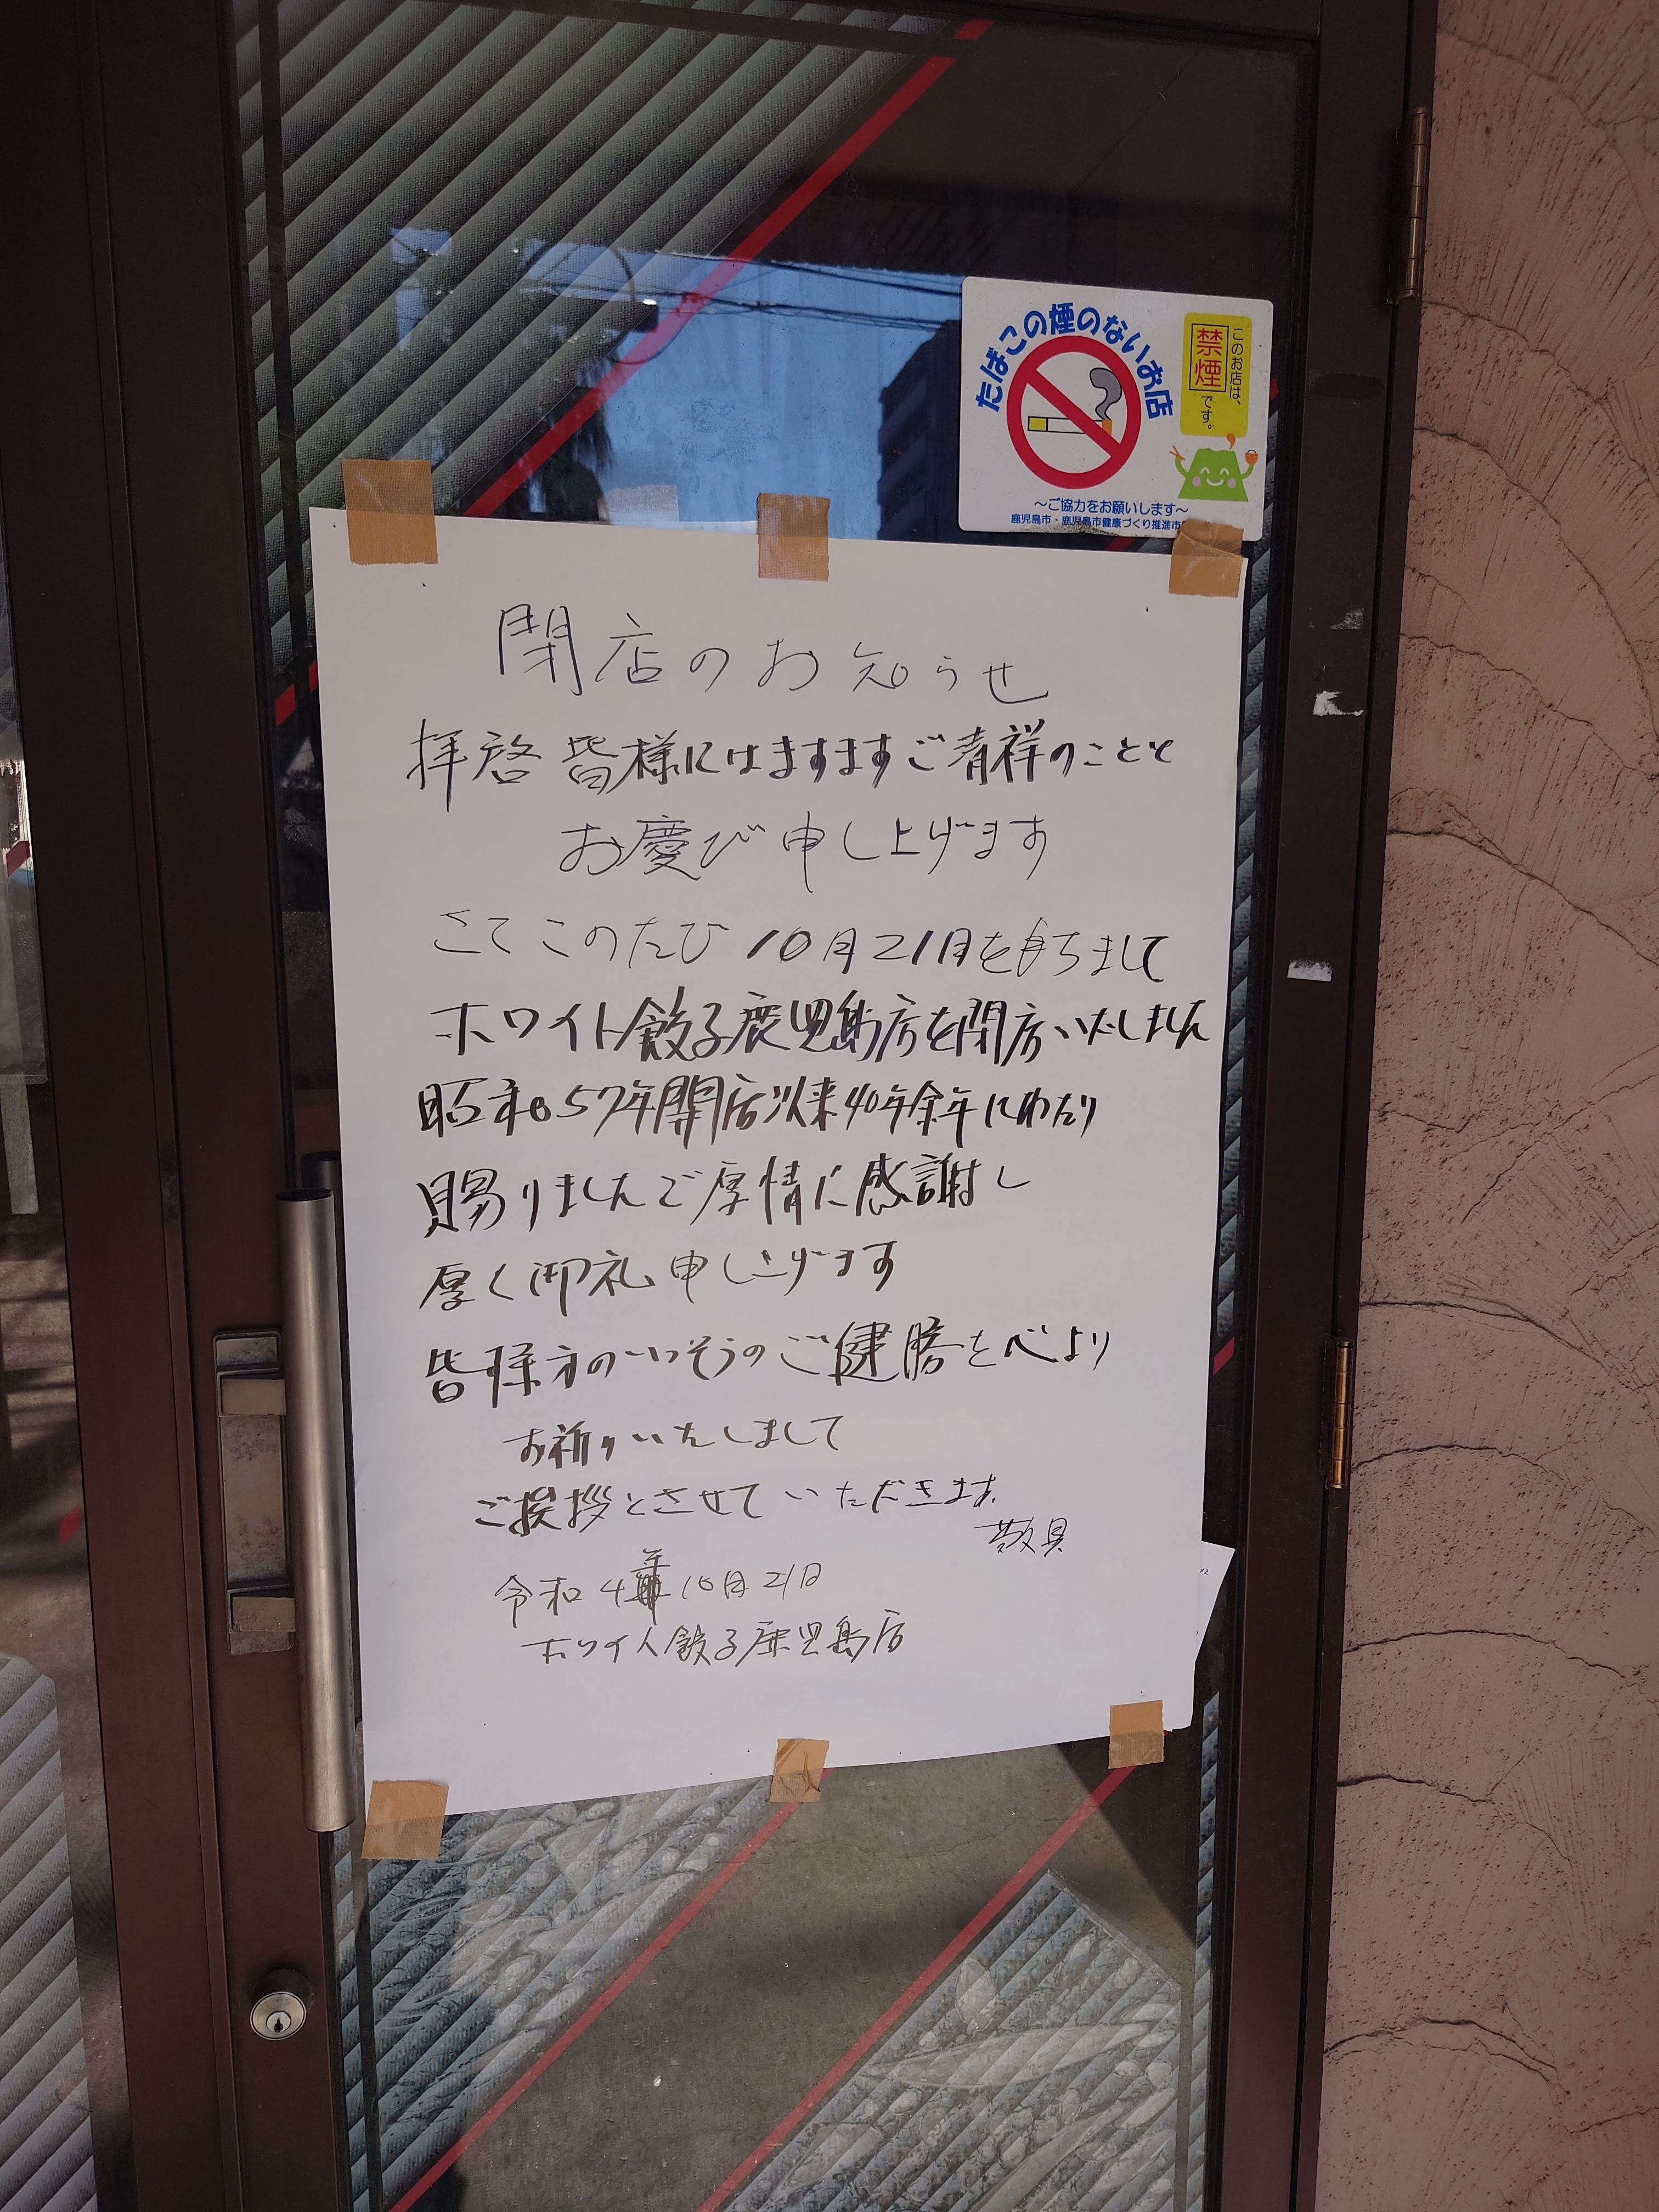 たばこの煙のないお店
このお店は、
禁煙です。
～ご協力をお願いします～
鹿児島市・鹿児島市健康づくり推進市
閉店のお知らせ
拝啓 皆様にはますますご清祥のことと
お慶び申し上げます
さてこのたび10月21日を持ちまして
ホワイト餃子鹿児島店を閉店いたしました
昭和57年開店以来40年余年にわたり
賜りましたご厚情に感謝し
厚く御礼申し上げます
皆様方のいっそうのご健勝を心より
お祈りいたしまして
ご挨拶とさせていただきます。
敬具
令和4年10月21日
ホワイト餃子鹿児島店